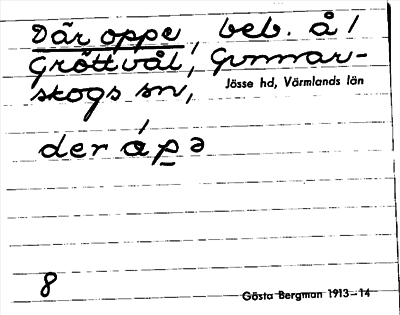 Där oppe, beb. å /
Gröttvål, Gunnar-
skogs sn,
Jösse hd, Värmlands län
der áp̱ə
8
Gösta Bergman 1913–14